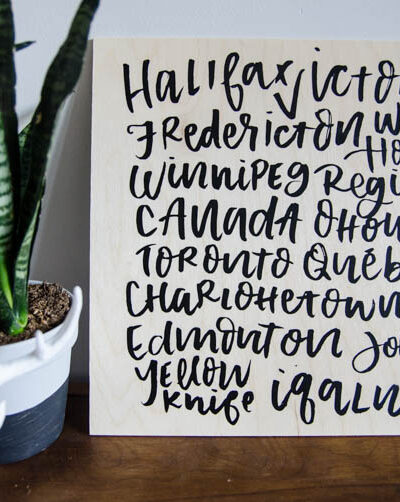 Halifax Victo
Fredericton W
Ho
Winnipeg Regi
CANADA Ottaw
Toronto Québ
Charlottetown
Edmonton Jo
Yellow
Knife iqalu